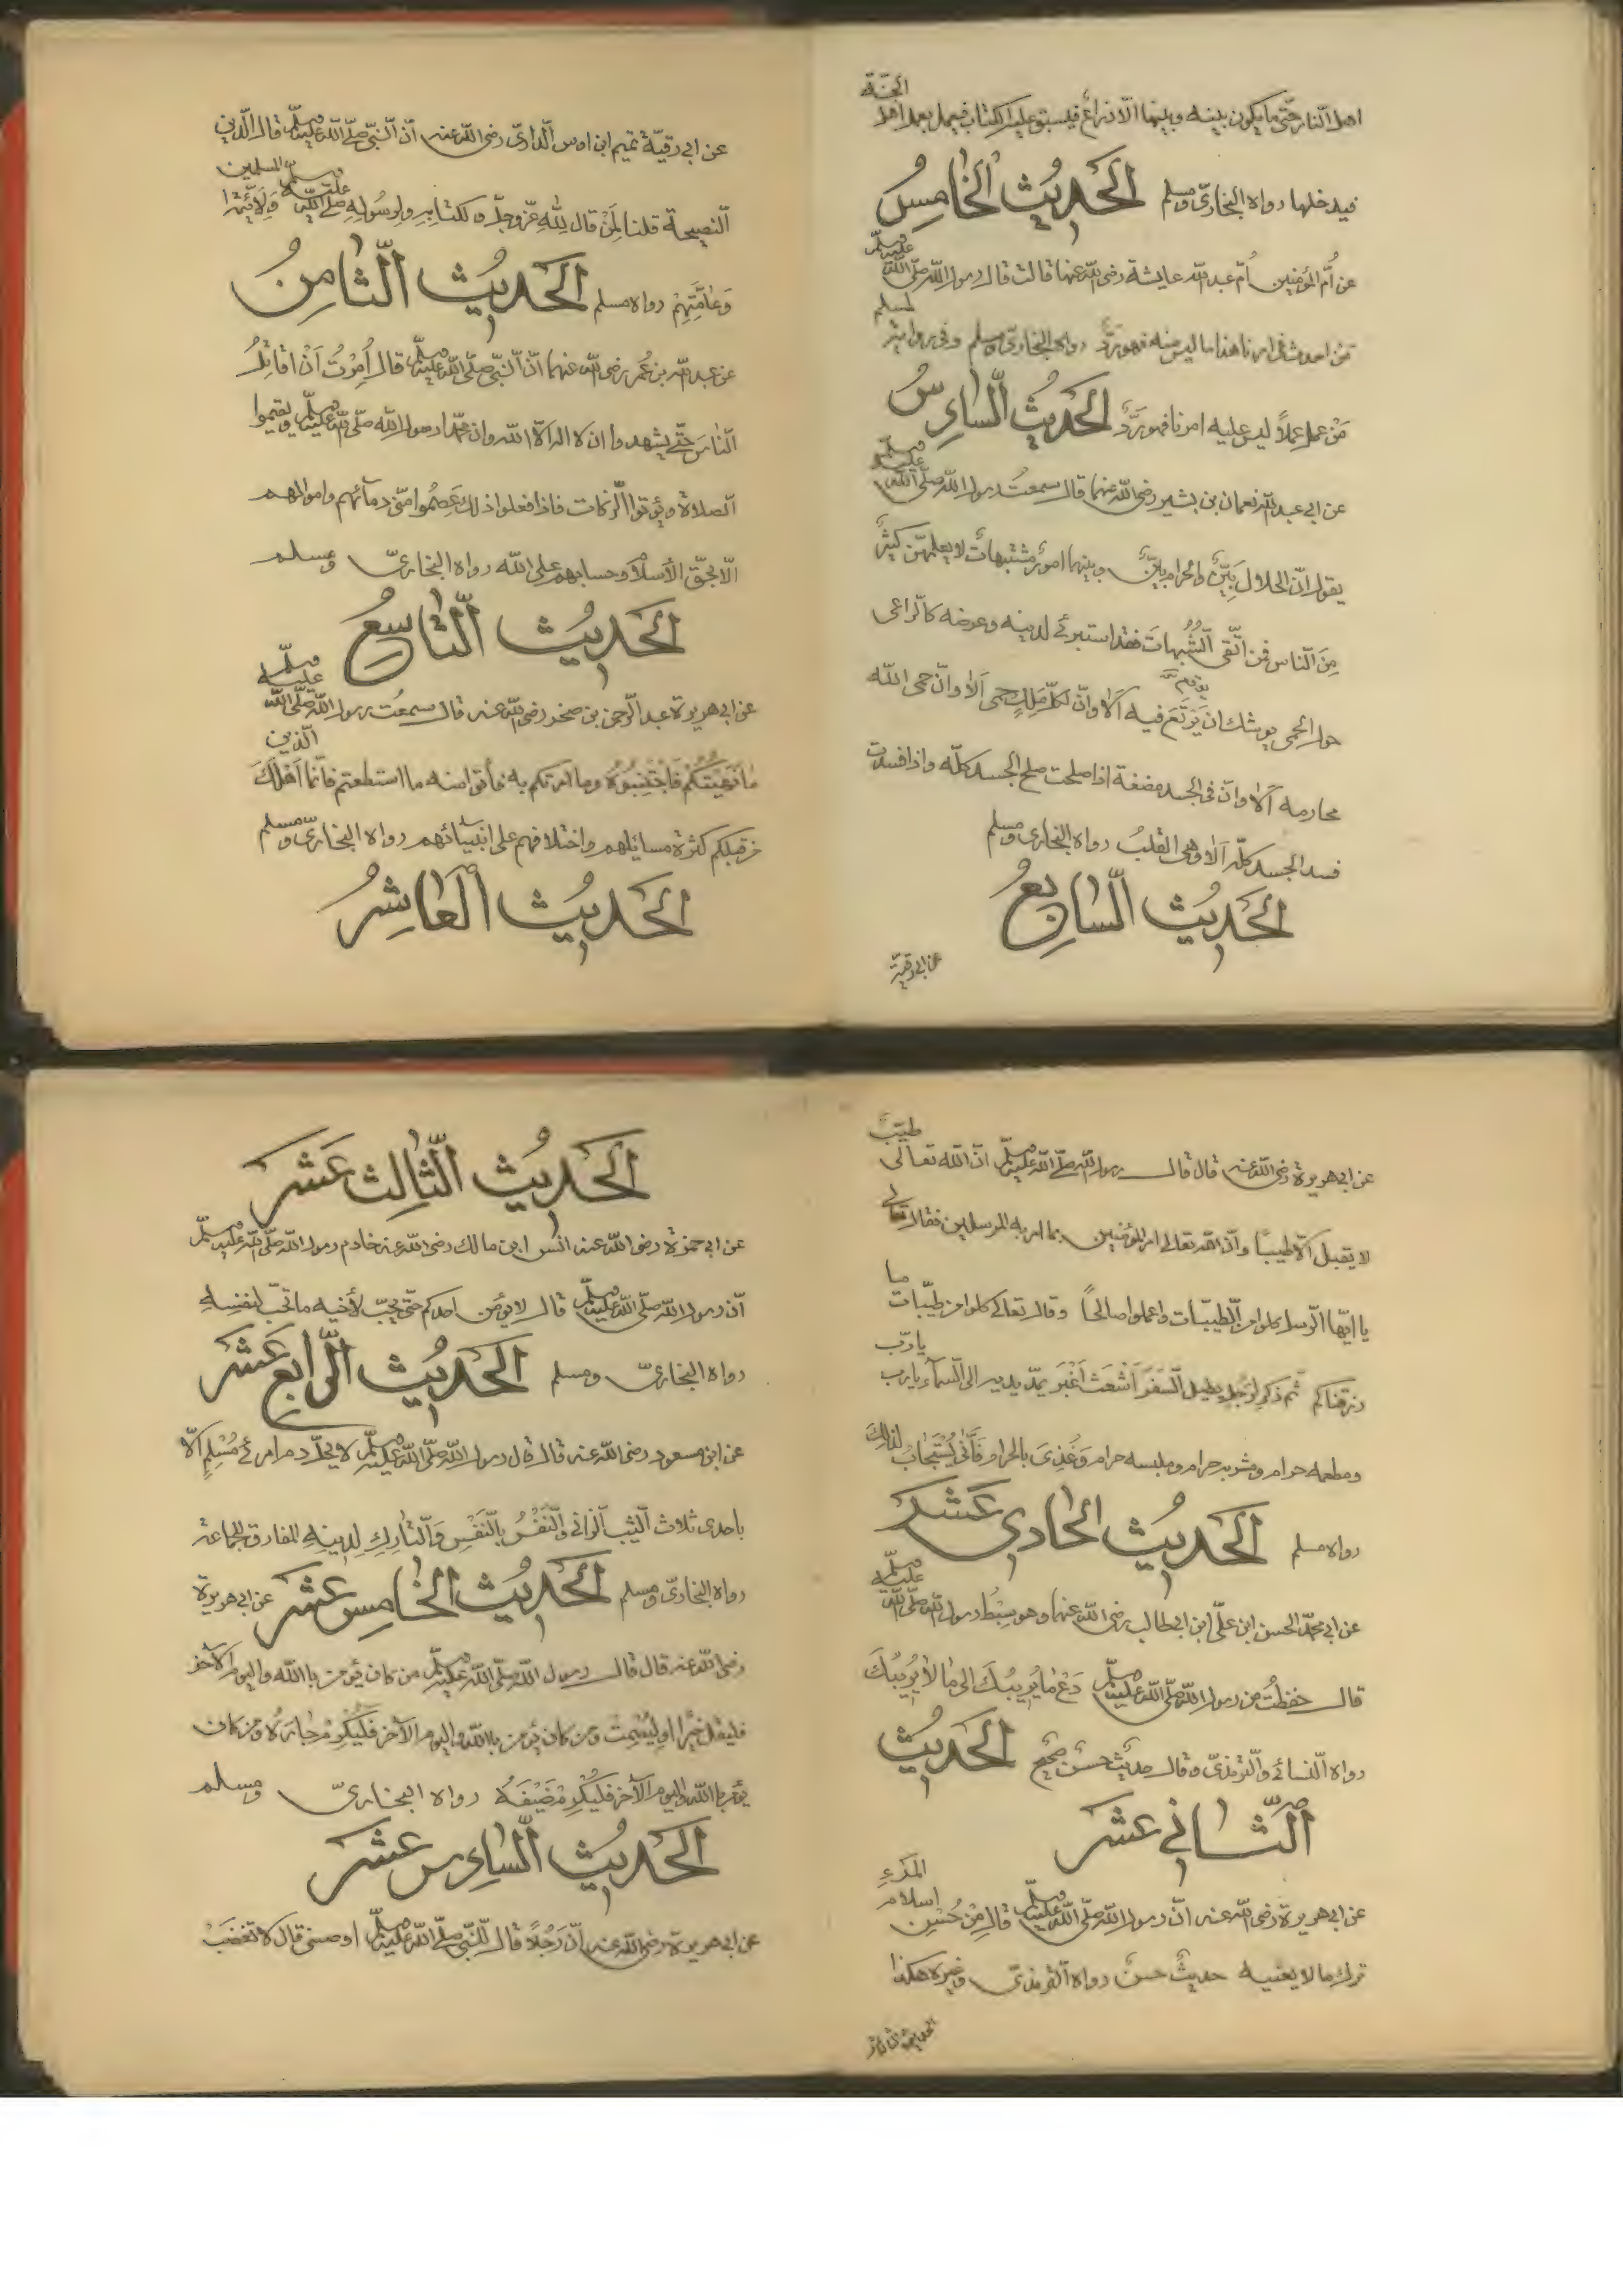 اهل النار حتّى ما يكون بينه وبينها الّا ذراع فيسبق عليه الكتاب فيعمل بعمل اهل الجنّة
فيدخلها رواه البخاريّ ومسلم الحَديُث الخامِسُ
عن أمّ المؤمنين أمّ عبد اللّه عايشة رضى اللّه عنها قالت قال رسول اللّه صلّى اللّه عليه وسلّم
مَن احدث فى امرنا هذا ما ليس منه فهو ردّ رواه البخاريّ ومسلم وفى رواية لمسلم
مَنْ عمل عملاً ليس عليه امرنا فهو ردٌّ الحَديُث السّادِسُ
عن ابى عبد اللّه نعمان بن بشير رضى اللّه عنهما قال سمعتُ رسول اللّه صلّى اللّه عليه وسلّم
يقول انّ الحلال بَيِّنٌ والحرام بيّنٌ وبينهما امورٌ مشتبهاتٌ لا يعلمهنّ كثيرٌ
مِنَ النّاس فمن اتّقى الشُّبُهاتَ فقد استبرئ لدينه وعرضه كالرّاعى
حول الحمى يوشك ان يَرْتَعَ فيه اَلا وانّ لكلّ مَلِكٍ حمى اَلا وانّ حمى اللّه
محارمه اَلا وانّ فى الجسد مضغة اذا صلحت صلح الجسد كلّه واذا فسدت
فسد الجسد كلّه اَلا وهى القلبُ رواه البخارى ومسلم
الحَديُث السّابِعُ
عن ابى رقيّة
عن ابى رقيّة تميم ابن اوس الدّاريّ رضى اللّه عنه انّ النّبىّ صلّى اللّه عليه وسلّم قال الدّين
النّصيحة قلنا لِمَنْ قال لِلّٰهِ عزّ وجلّ ولكتابِهِ ولرسُولِهِ صلّى اللّه عليه وسلّم وَلِاَئِمَّةِ المسلمين
وَعامَّتِهِمْ رواه مسلم الحَديُث الثّامِنُ
عن عبد اللّه بن عُمر رضى اللّه عنهما انّ النّبىّ صلّى اللّه عليه وسلّم قال اُمِرْتُ اَنْ اقاتِلَ
النّاسَ حتّى يشهدوا ان لا اله الّا اللّه وان محمّدا رسول اللّه صلّى اللّه عليه وسلّم ويقيموا
الصلاة ويؤتوا الزّكات فاذا فعلوا ذلك عَصِمُوا منّى دمآئهم واموالهم
الّا بحقّ الأسلام وحسابهم على اللّه رواه البخاريّ ومسلم
الحَديُث التّاسِعُ
عن ابى هريرة عبد الرّحمن بن صخر رضى اللّه عنه قال سمعتُ رسول اللّه صلّى اللّه عليه وسلّم
مٰا نَهَيْتُكُم فَاجْتَنِبُوهُ وما امرتكم به فأتوا منه ما استطعتم فانّما اَهْلَكَ الّذين
من قبلكم كثرة مسائلهم واختلافهم على انبيائهم رواه البخاريّ ومسلم
الحَديُث العٰاشِرُ
عن ابى هريرة رضى اللّه عنه قال قال رسول اللّه صلّى اللّه عليه وسلّم انّ اللّه تعالى طيّبٌ
لا يقبل الّا طيباً وانّ اللّه تعالى امر المؤمنين بما امر به المرسلين فقال تعالى
يا ايّها الرّسل كلوا من الطّيبات واعملوا صالحاً وقال تعالى كلوا من طيّبات ما
رزقناكم ثم ذكر الرّجل يطيل السّفر اَشْعَثَ اَغْبَرَ يمدّ يديه الى السّمآء يا ربّ يا ربّ
ومطعمه حرام ومشربه حرام وملبسه حرام وَغُذِىَ بالحرام فَأَنّٰى يُسْتَجٰابُ لذلك
رواه مسلم الحَديُث الحٰادى عَشَر
عن ابى محمّد الحسن ابن علىّ ابن ابى طالب رضى اللّه عنهما وهو سِبْطُ رسول اللّه صلّى اللّه عليه وسلّم
قال حفظتُ من رسول اللّه صلّى اللّه عليه وسلّم دَعْ مٰا يُرِيبُكَ الى مٰا لا يُرِيبُكَ
رواه النّسائ والتّرمذىّ وقال حديثٌ حسنٌ صحيحٌ الحَديُث
الثّانى عَشَر
عن ابى هريرة رضى اللّه عنه انّ رسول اللّه صلّى اللّه عليه وسلّم قال مِنْ حُسْنِ اسلام المَرْءِ
ترك ما لا يعنيه حديثٌ حسنٌ رواه التّرمذىّ وغيره هكذا
الحديث الثالث
الحَديُث الثّالِث عَشَر
عن ابى حمزة رضى اللّه عنه انس ابن مالك رضى اللّه عنه خادم رسول اللّه صلّى اللّه عليه وسلّم
انّ رسول اللّه صلّى اللّه عليه وسلّم قال لا يؤمن احدكم حتّى يحبّ لأخيه ما تحبّ لنفسِهِ
رواه البخاريّ ومسلم الحَديُث الرّابِع عَشَر
عن ابن مسعود رضى اللّه عنه قال قال رسول اللّه صلّى اللّه عليه وسلّم لا يحلّ دم امرئ مُسْلِمٍ الّا
باحدى ثلاث الثيب الزانى وَالنّفْسُ بِالنَّفَسِ وَالتّارِكِ لِدِينِهِ المفارق للجماعة
رواه البخاريّ ومسلم الحَديُث الخٰامِس عَشَر عن ابى هريرة
رضى اللّه عنه قال قال رسول اللّه صلّى اللّه عليه وسلّم من كان يؤمن باللّه واليوم الآخر
فليقل خيراً او لِيَصْمِتْ ومن كان يؤمن باللّه واليوم الآخر فَلْيُكْرِمْ جٰارَهُ ومن كان
يؤمن باللّه واليوم الآخر فَلْيُكْرِمْ ضَيْفَهُ رواه البخاريّ ومسلم
الحَديُث السّادِس عَشَر
عن ابى هريرة رضى اللّه عنه انّ رَجُلاً قال للنّبىّ صلّى اللّه عليه وسلّم اوصنى قال لا تَغْضَبْ